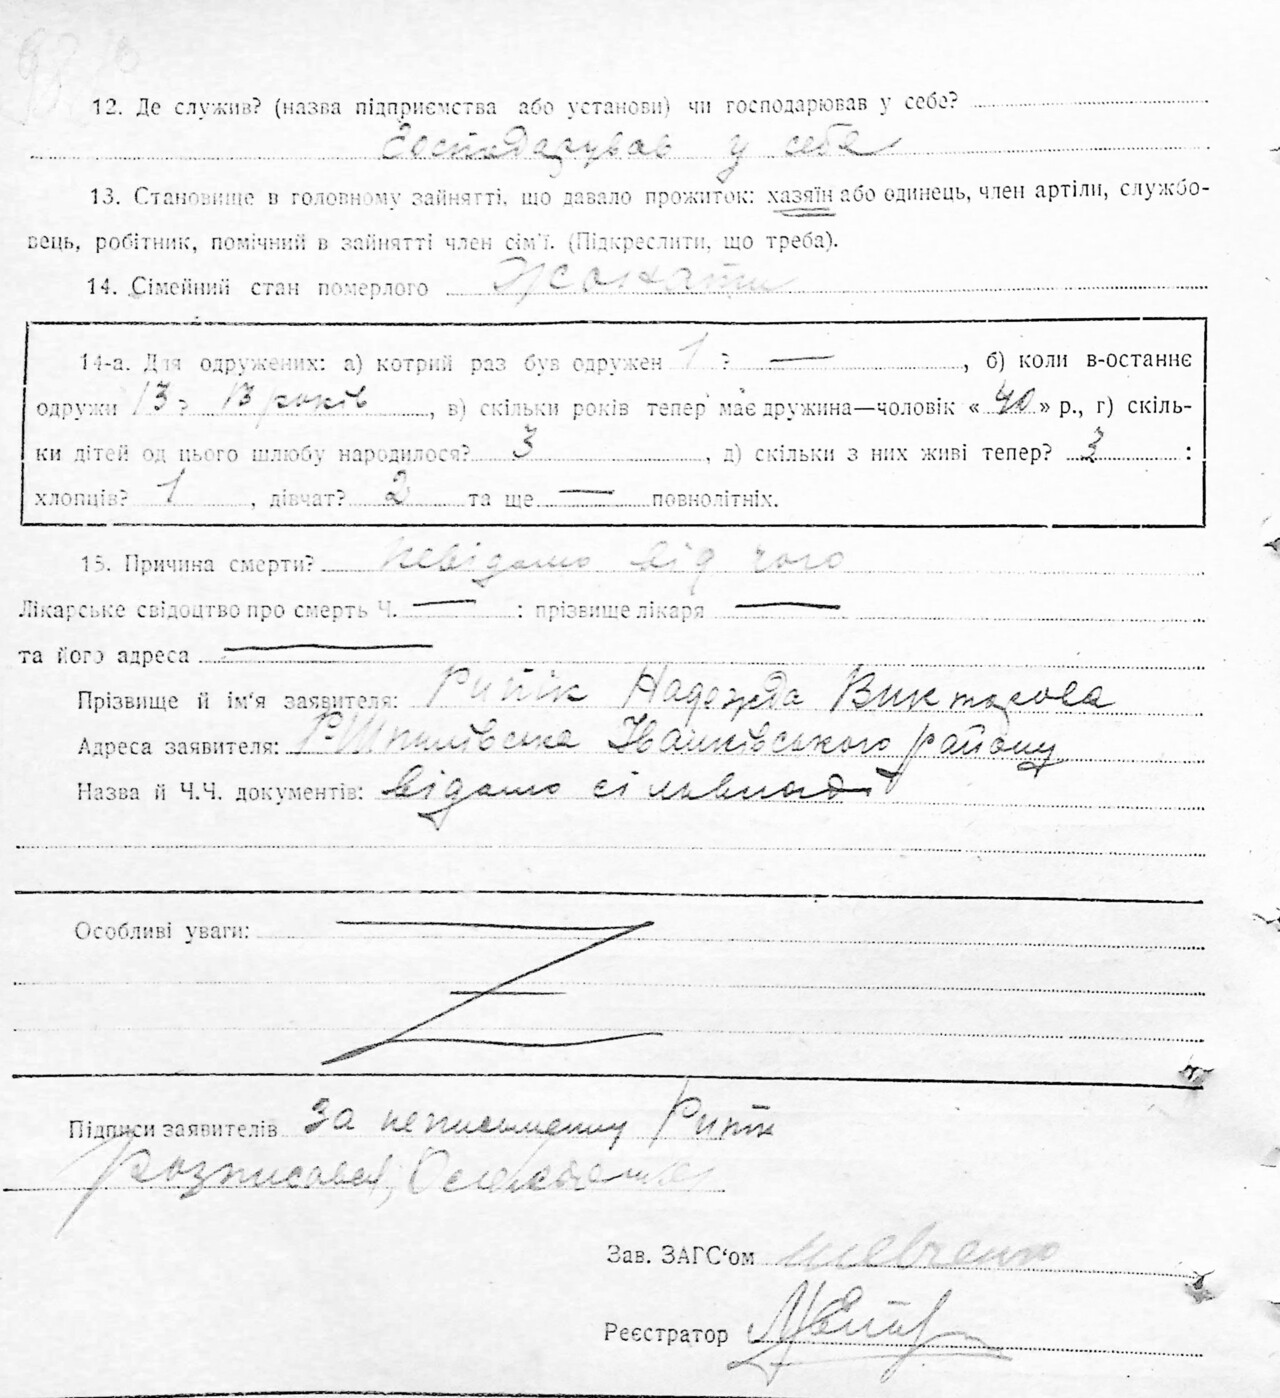 12. Де служив? (назва підприємства або установи) чи господарював у себе?
Господарував у себе
13. Становище в головному зайнятті, що давало прожиток: хазяїн або одинець, член артіли, службо-
вець, робітник, помічний в зайнятті член сім'ї. (Підкреслити, що треба).
14. Сімейний стан померлого Жонати
14-а. Для одружених: а) котрий раз був одружен 1 ? —, б) коли в-останнє
одружи 13 ? 13 років, в) скільки років тепер має дружина—чоловік « 40 » р., г) скіль-
ки дітей од цього шлюбу народилося? 3, д) скільки з них живі тепер? 3 :
хлопців? 1, дівчат? 2 та ще — повнолітніх.
15. Причина смерти? невідомо від чого
Лікарське свідоцтво про смерть Ч. — : прізвище лікаря —
та його адреса —
Прізвище й ім'я заявителя: Рипік Надежда Викторова
Адреса заявителя: Іванківського району
Назва й Ч.Ч. документів: відомо сільвладі
Особливі уваги:
Підписи заявителів За неписьменну Рипік
Розписався
Зав. ЗАГС'ом Шевченко
Реєстратор